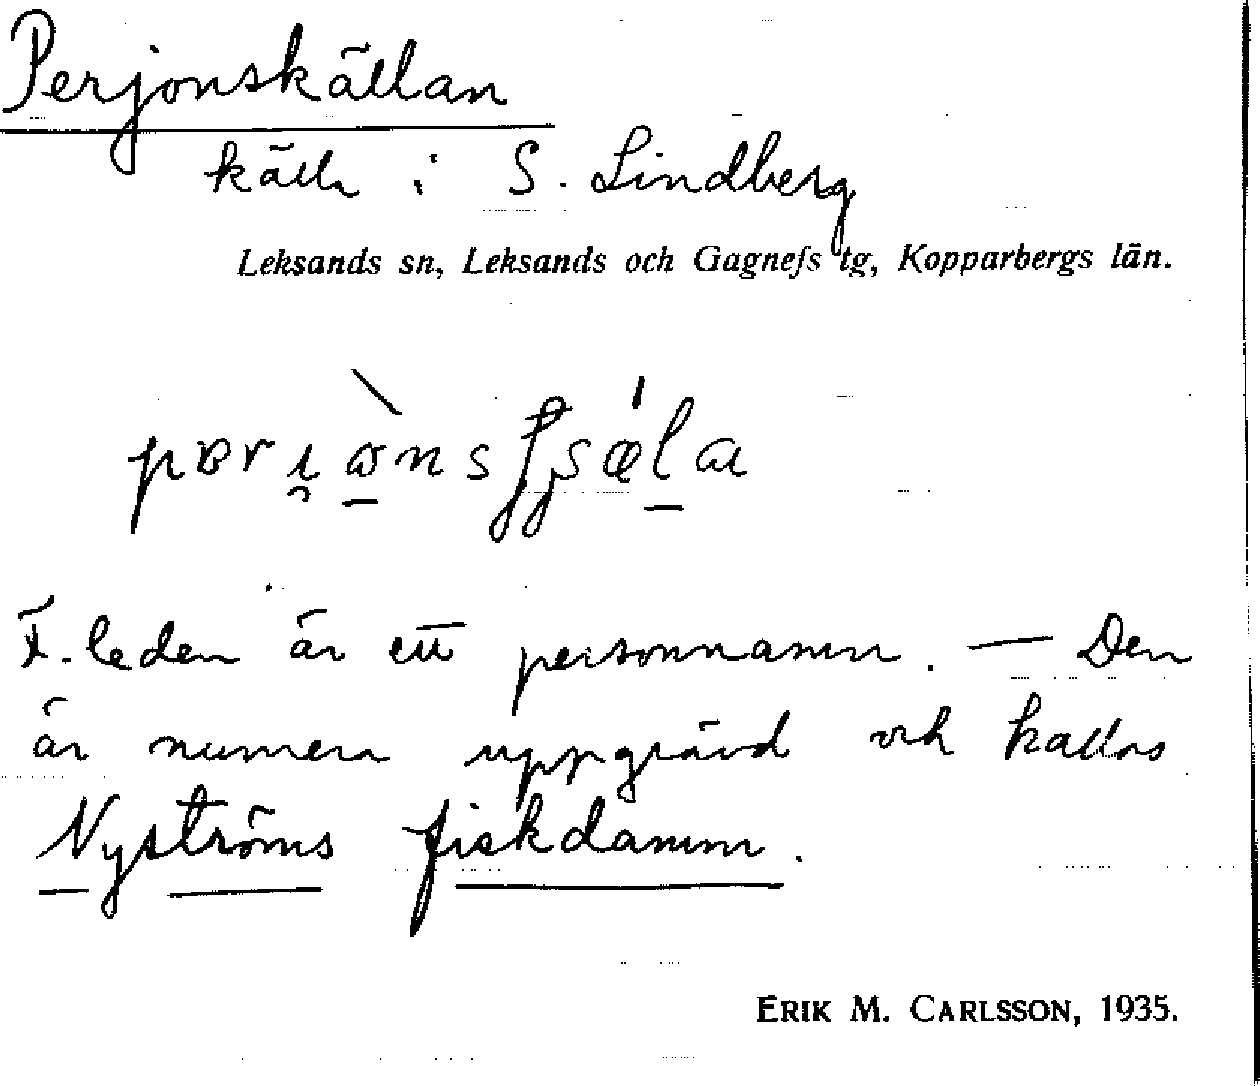 Perjonskällan
källa i S. Lindberg
Leksands sn, Leksands och Gagnefs tg, Kopparbergs län.
F. leden är ett personnamn. — Den
är numera uppgrävd och kallas
Nyströms fiskdamm.
ERIK M. CARLSSON, 1935.